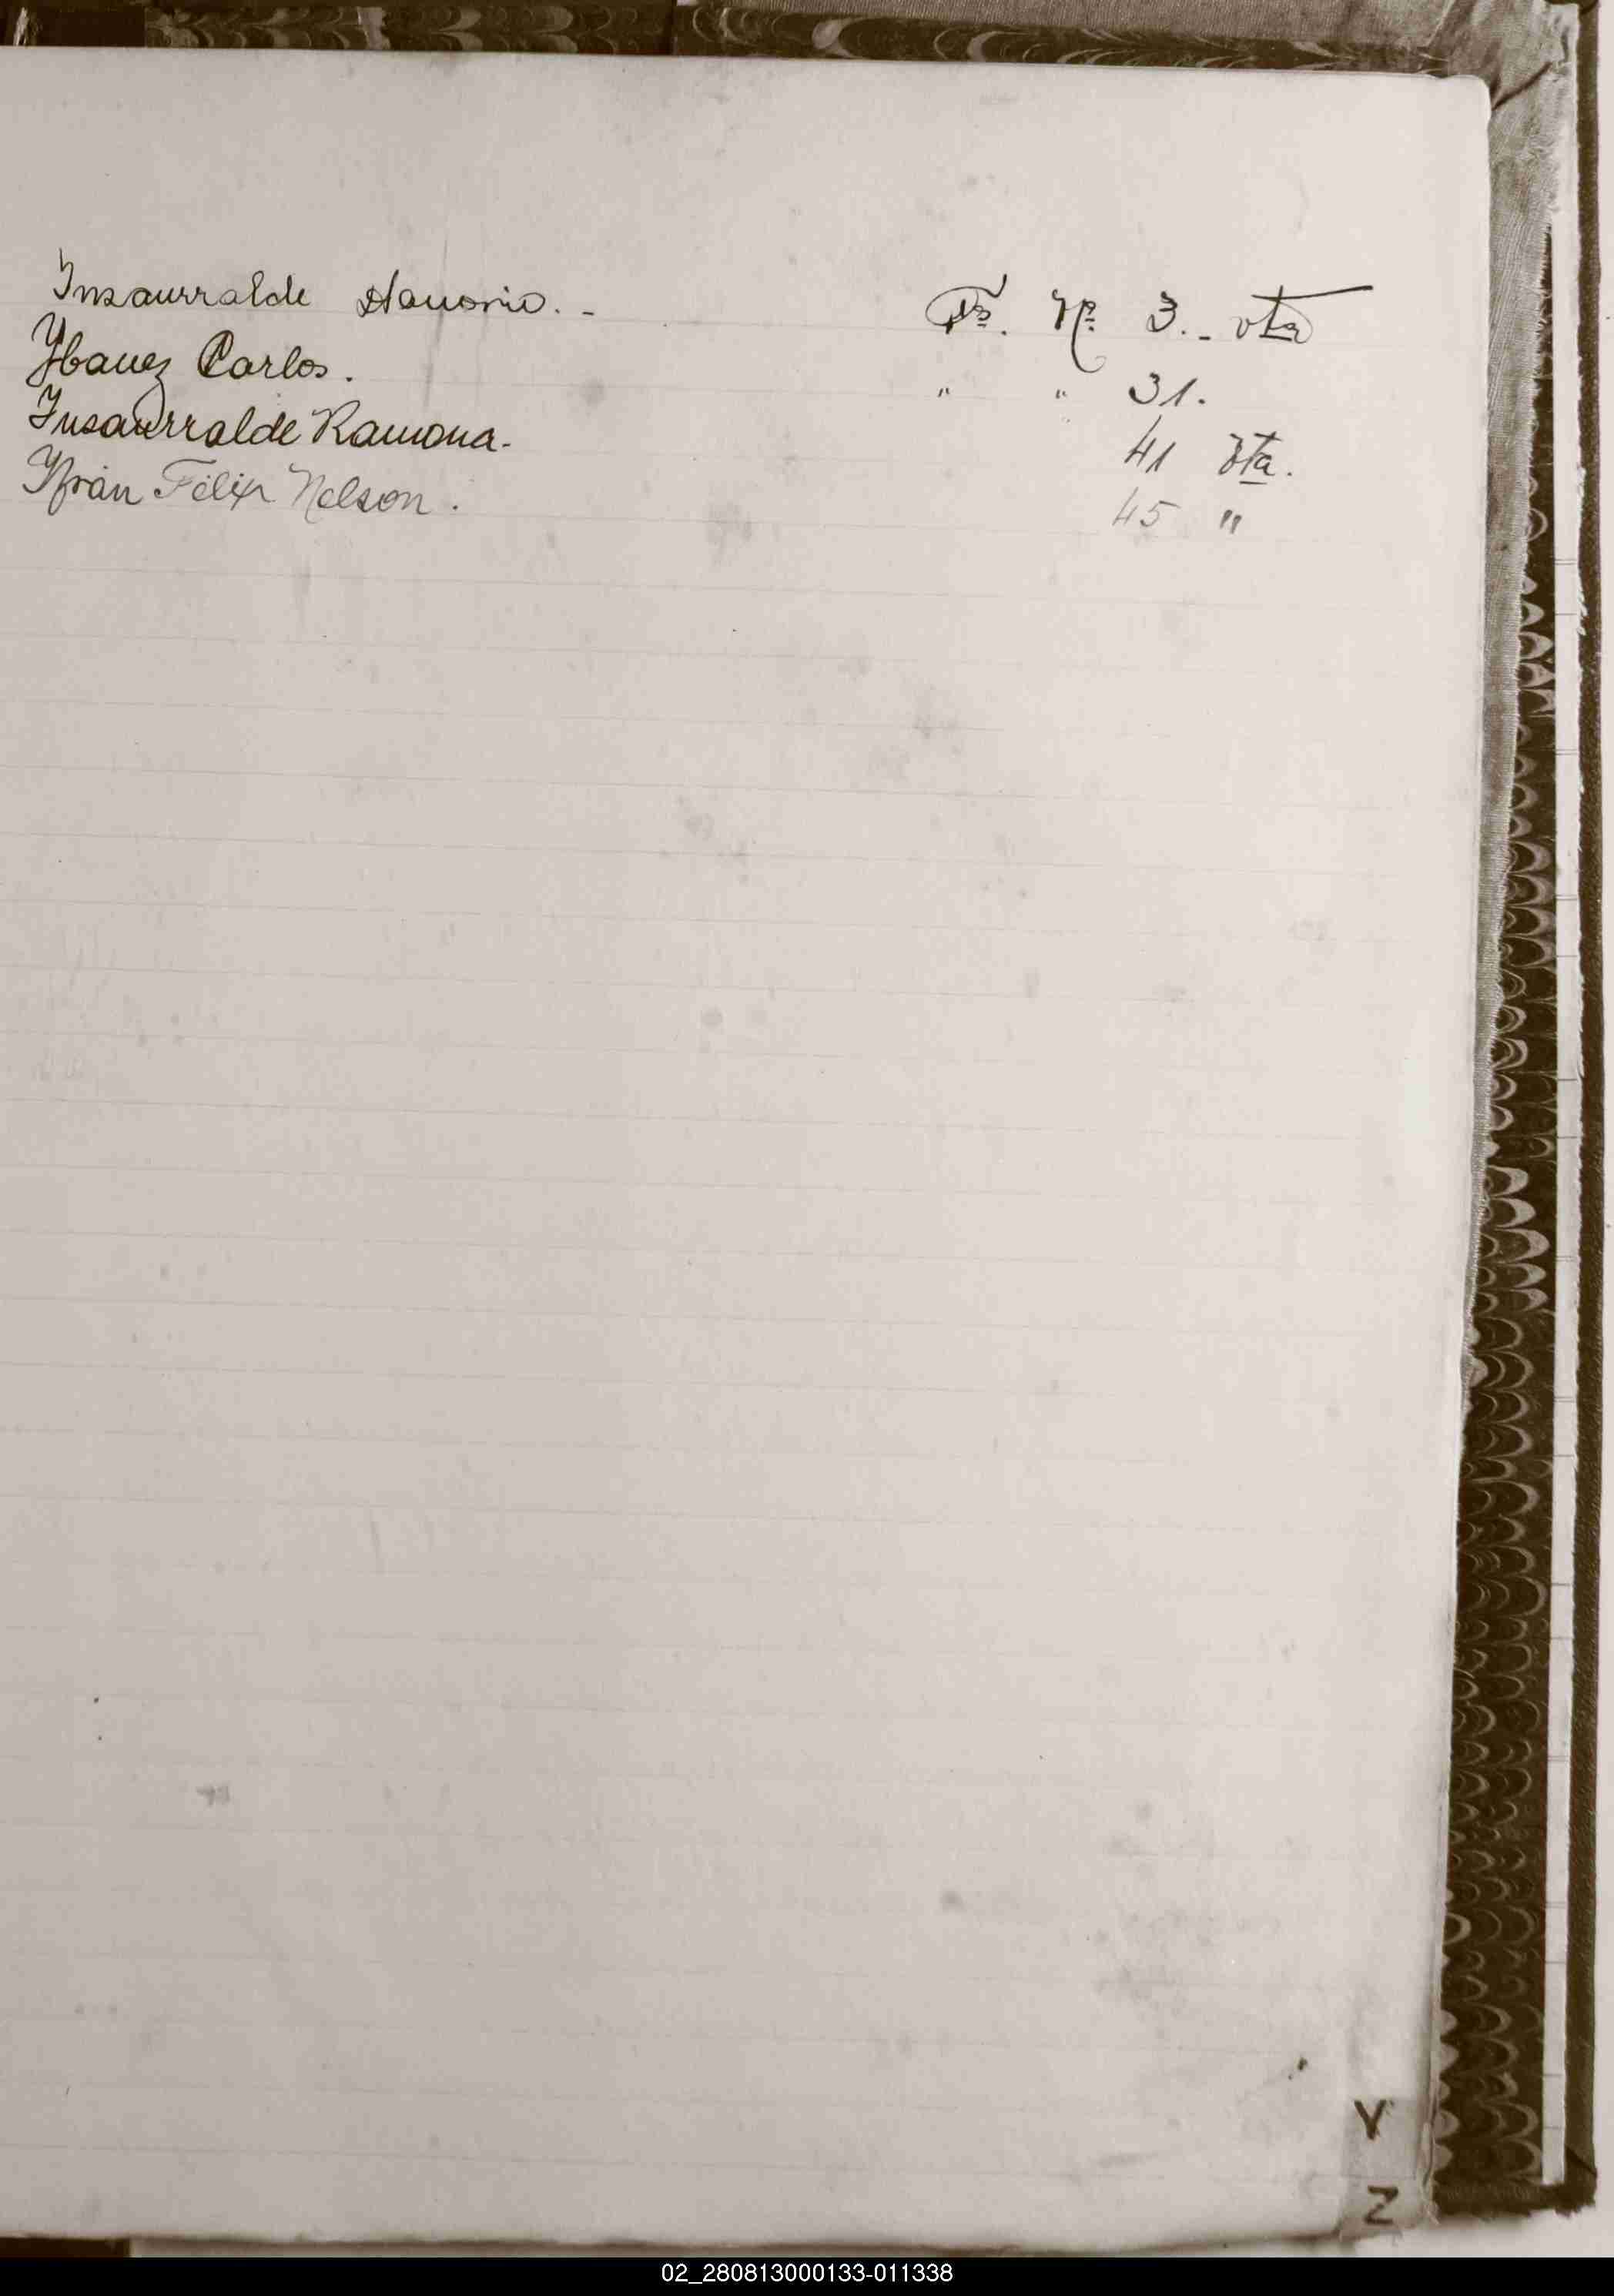 Insaurralde Honorio.- Fs. Nº 3.- vta
Ybanez Carlos. " " 31.
Insaurralde Ramona. 41 Vta.
Yfrán Félix Nelson. 45 "
Y
Z
02_280813000133-011338